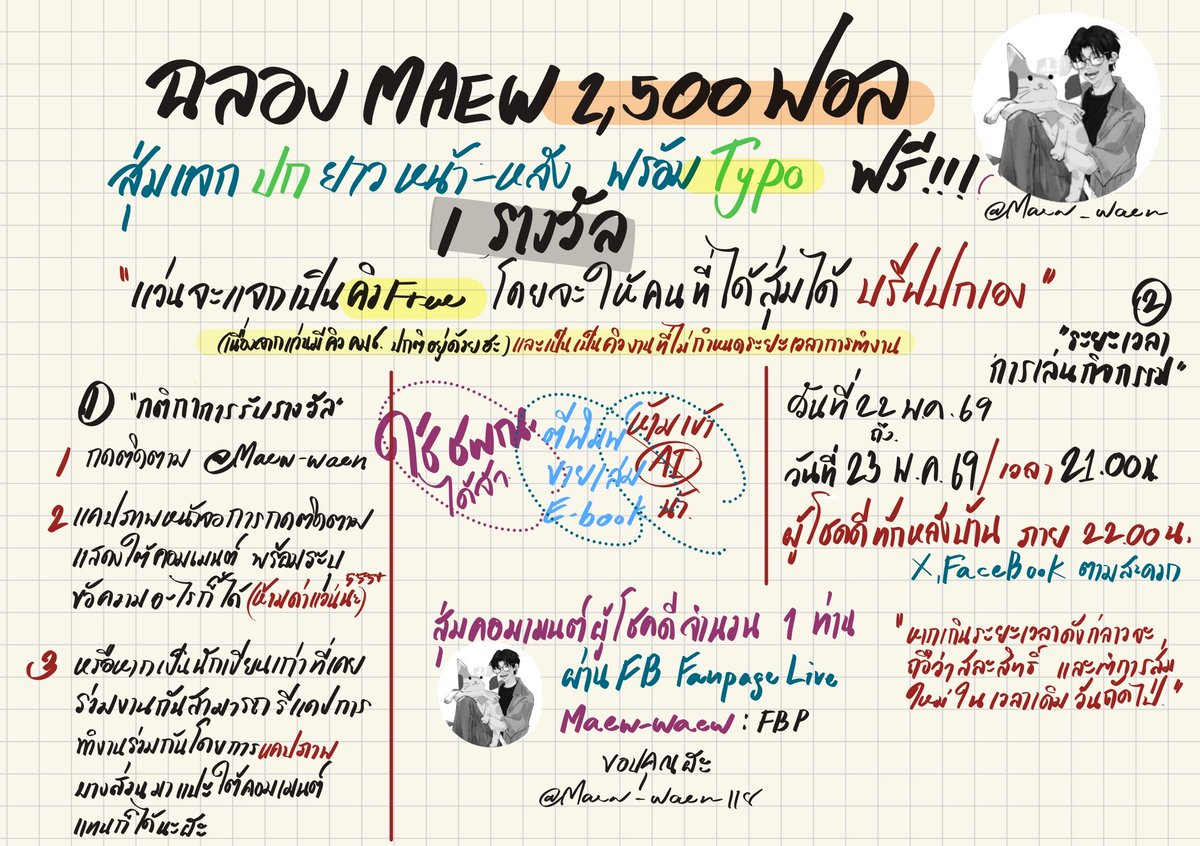 ฉลอง MAEW 2,500 ฟอล
สุ่มแจก ปก ยาว หน้า-หลัง พร้อม Typo ฟรี!!!
@Maew_waen
1 รางวัล
"แว่นจะแจกเป็นคิว Free โดยจะให้คนที่ได้สุ่มได้ บรีฟปกเอง"
(เนื่องจากแว่นมีคิว คมช. ปกติอยู่ด้วยฮะ) และเป็นเป็นคิวงานที่ไม่กำหนดระยะเวลาการทำงาน
① "กติกาการรับรางวัล"
1 กดติดตาม @Maew-waen
2 แคปภาพหน้าจอการกดติดตาม
แสดงใต้คอมเมนต์ พร้อมระบุ
ข้อความอะไรก็ได้ (ห้ามด่าแว่นนะ) 555+
3 หรือหากเป็นนักเขียนเก่าที่เคย
ร่วมงานกันสามารถรีแคปการ
ทำงานร่วมกันโดยการแคปภาพ
บางส่วนมาแปะใต้คอมเมนต์
แทนก็ได้นะฮะ
ใช้
ได้
ตีพิมพ์
ขาย/เล่ม
E-book
ห้ามเข้า
AI
น้า
②
"ระยะเวลา
การเล่นกิจกรรม"
วันที่ 22 พค. 69
ถึง
วันที่ 23 พ.ค. 69 / เวลา 21.00น
ผู้โชคดีทักหลังบ้าน ภาย 22.00 น.
X, FaceBook ตามสะดวก
"หากเกินระยะเวลาดังกล่าวจะ
ถือว่าสละสิทธิ์ และทำการสุ่ม
ใหม่ในเวลาเดิมวันถัดไป."
สุ่มคอมเมนต์ผู้โชคดีจำนวน 1 ท่าน
ผ่าน FB Fanpage Live
Maew-waew : FBP
ขอบคุณฮะ
@Maew_waen